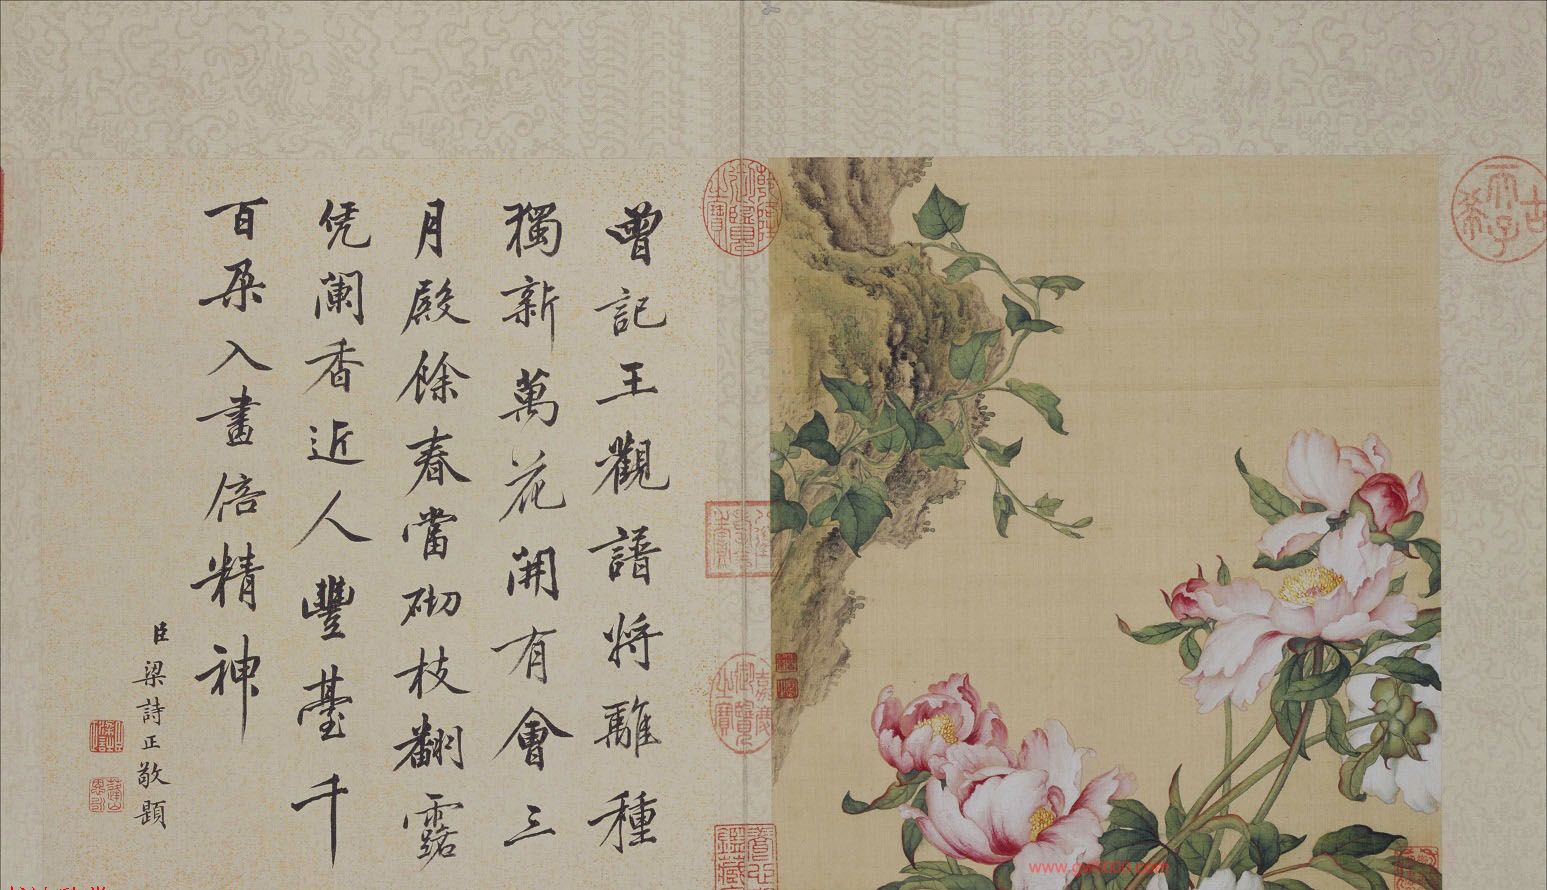 曾記王觀譜將離種
獨新萬花開有會三
月殿餘春當砌枝翻露
凭闌香近人豐臺千
百朵入畫倍精神
臣梁詩正敬題
www.gw8000.com